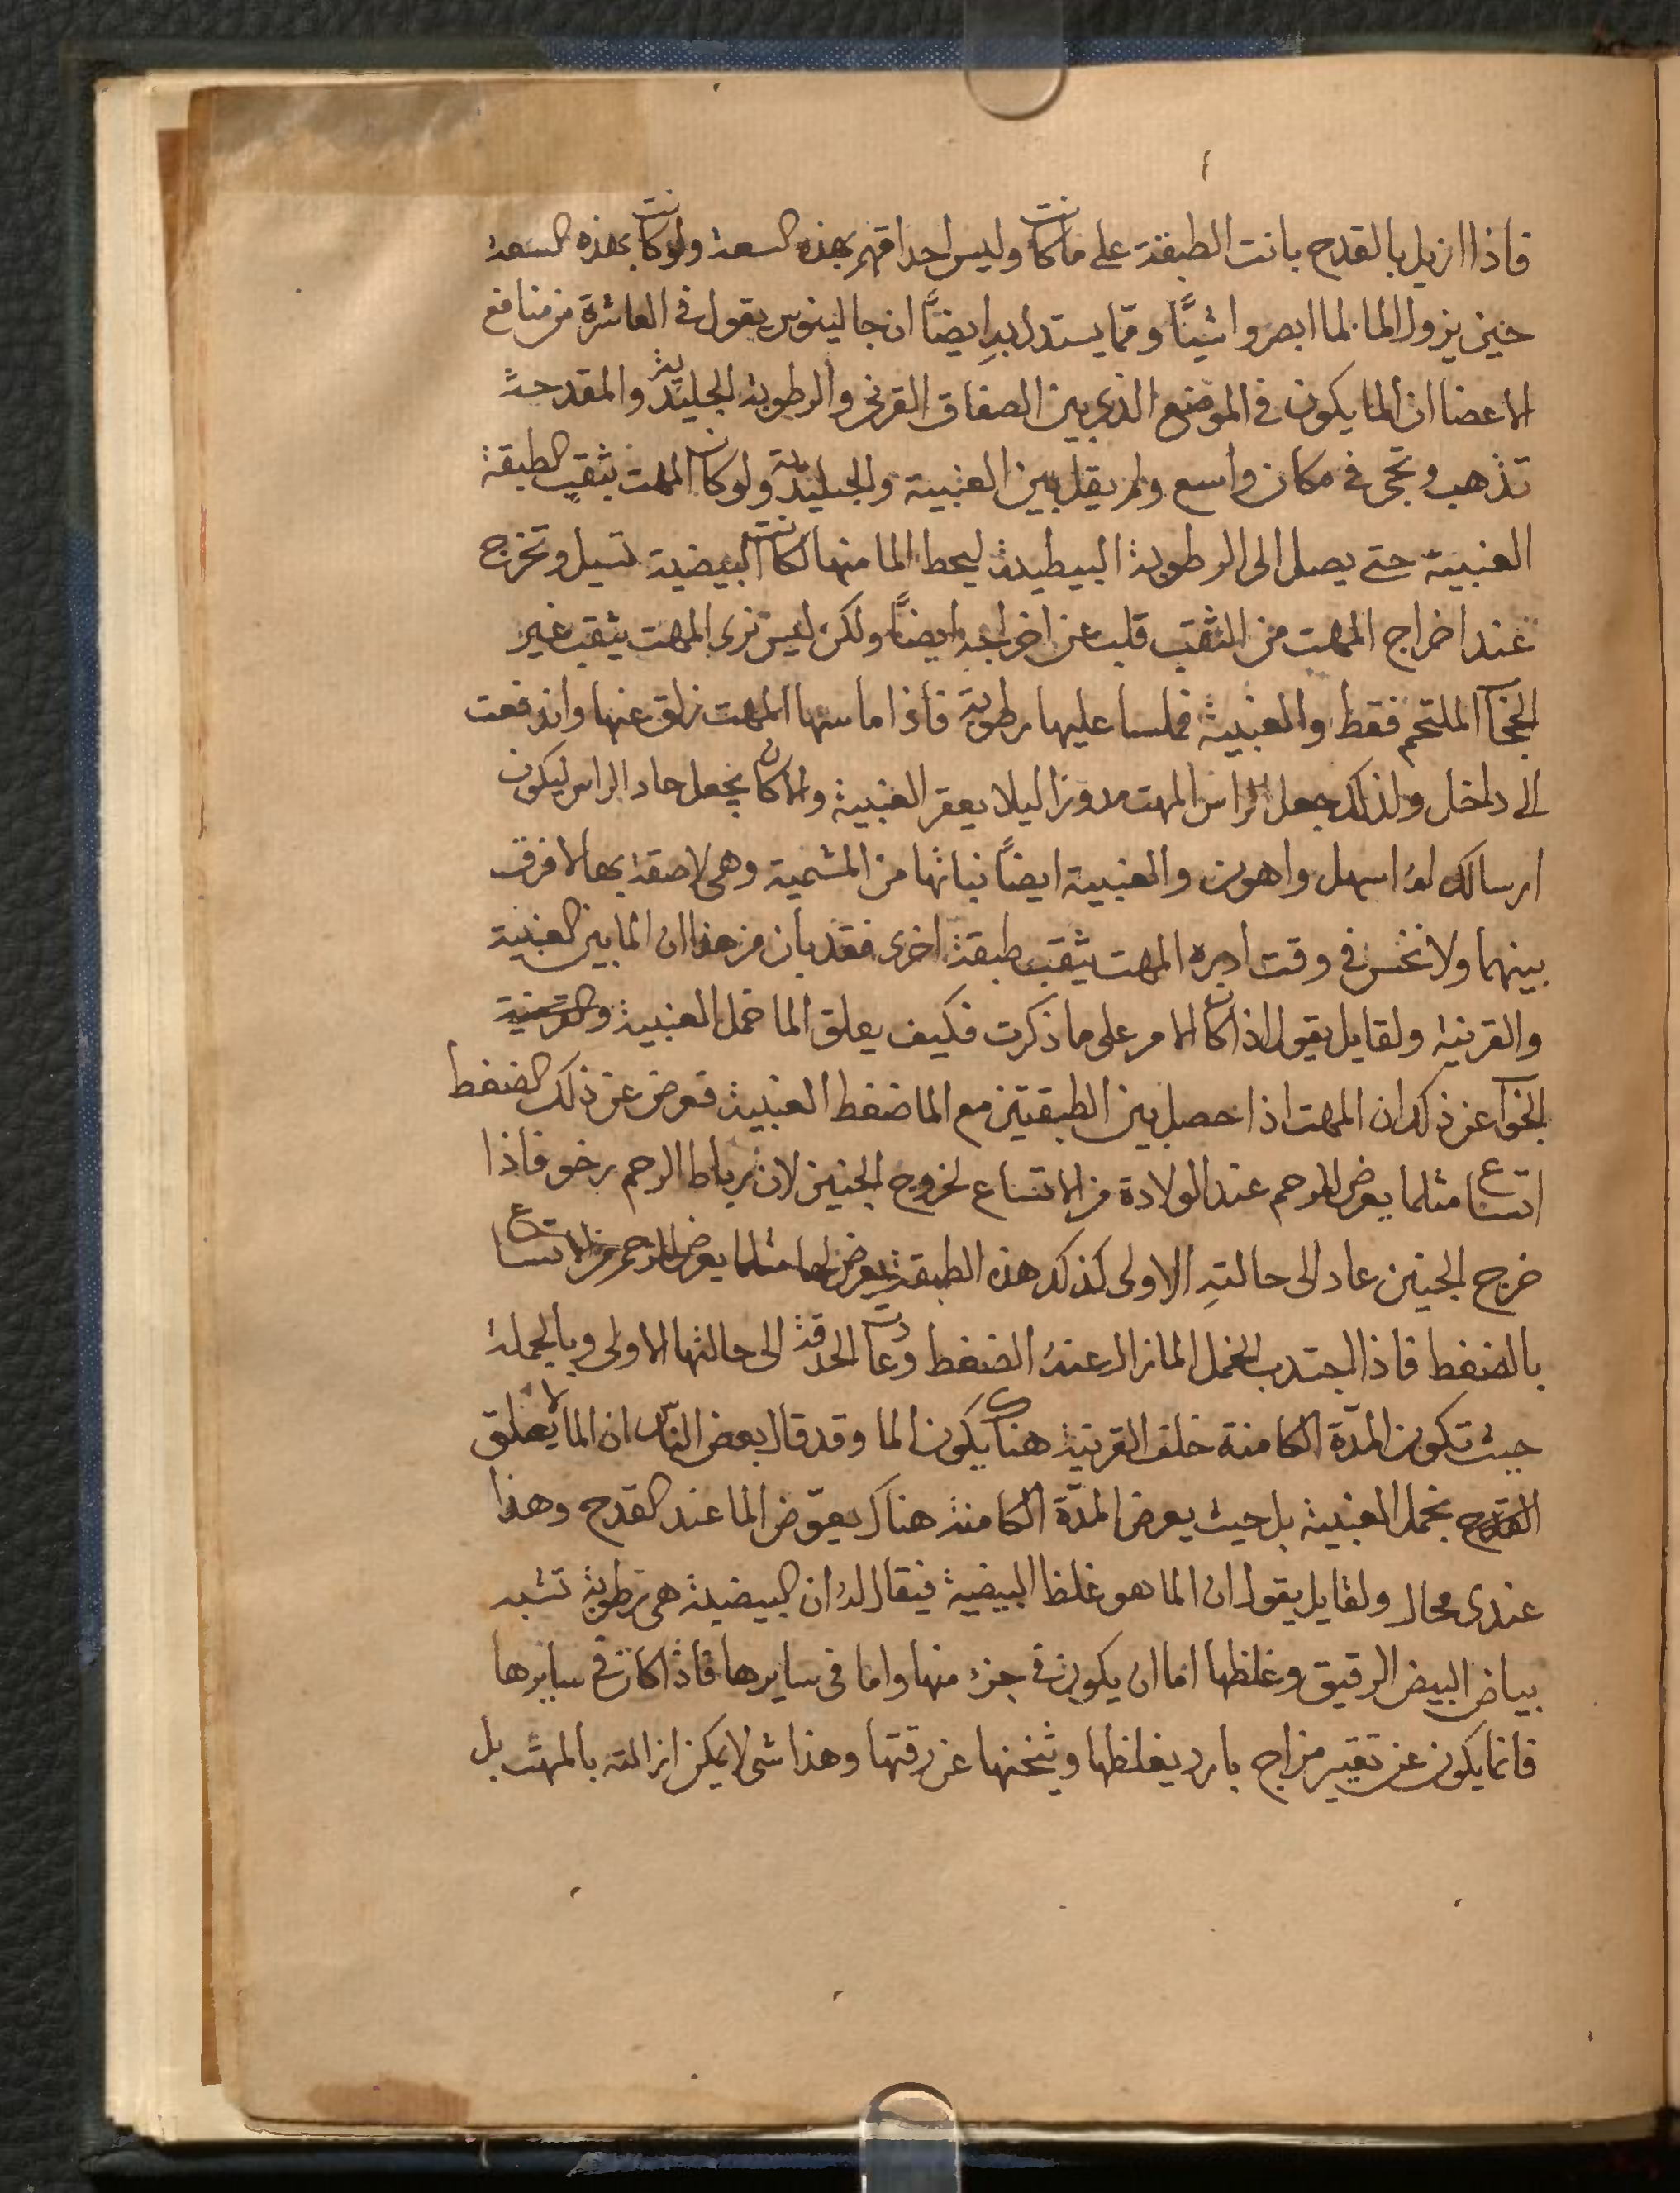 فاذا ازيل بالقدح بانت الطبقة على ما كانت وليس احداقهم بهذه السعة ولو كانت بهذه السعة
حين يزول الما لما ابصروا شيئًا وممّا يستدل به ايضًا ان جالينوس يقول في العاشرة من منافع
الاعضا ان الما يكون في الموضع الذي بين الصفاق القرني والرطوبة الجليدية والمقدحة
تذهب وتجى في مكان واسع ولم يقل بين العنبية والجليدية ولو كان المهت يثقب الطبقة
العنبية حتى يصل الى الرطوبة البيضية ليحط الما منها لكانت البيضية تسيل وتخرج
عند اخراج المهت من الثقب قلت عن اخراجه ايضًا ولكن ليس نرى المهت يثقب غير
الحجاب الملتحم فقط والعنبية فملسا عليها رطوبة فاذا ماستها المهت زلق عنها واندفعت
الى داخل ولذلك جعل الراس المهت مدورا ليلا يعقر العنبية والا كان يجعل حاد الراس ليكون
ارساله له اسهل واهون والعنبية ايضًا نباتها من المشمية وهى لاصقة بها لا فرق
بينهما ولا نخس في وقت المهت يثقب طبقة اخرى فقد بان من هذا ان الما بين العنبية
والقرنية ولقايل يقول اذا كان الامر على ما ذكرت فكيف يعلق الما خمل العنبية والقرنية
الجواب عن ذلك ان المهت اذا حصل بين الطبقتين مع الما ضغط العنبية فعرض عن ذلك الضغط
اتساع مثلما يعرض للرحم عند الولادة من الاتساع لخروج الجنين لان رباط الرحم رخو فاذا
خرج الجنين عاد الى حالته الاولى كذلك هذه الطبقة يعرض لها مثلما يعرض للرحم من الاتساع
بالضغط فاذا اجتدب الخمل الما زال عنه الضغط وعادت الحدقة الى حالتها الاولى وبالجملة
حيث تكون المدّة الكامنة خلف القرنية هناك يكون الما وقد قال بعض الناس ان الما لا يعلق
القدح بخمل العنبية بل حيث يعرض المدّة الكامنة هناك يعوّض الما عند القدح وهذا
عندى محال ولقايل يقول ان الما هو غلظ البيضية فيقال له ان البيضية هى رطوبة تشبه
بياض البيض الرقيق وغلظها اما ان يكون في جزء منها واما في سايرها فاذا كان في سايرها
فانما يكون عن تغير مزاج بارد يغلظها ويثخنها عن رقتها وهذا شى لا يمكن ازالته بالمهت بل